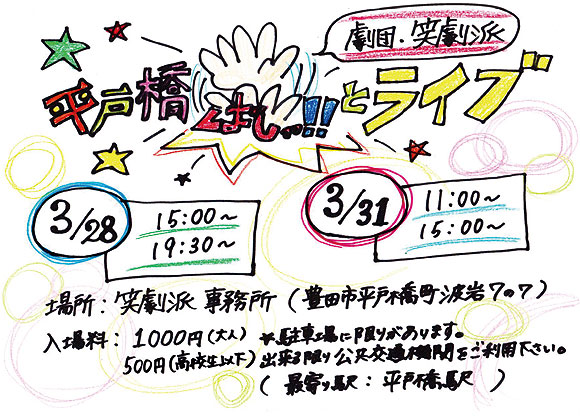 劇団.笑劇派
平戸橋くましっ!!とライブ
3/28
15:00〜
19:30〜
3/31
11:00〜
15:00〜
場所:笑劇派 事務所(豊田市平戸橋町波岩7の7)
入場料:1000円(大人) *駐車場に限りがあります。
500円(高校生以下) 出来る限り公共交通機関をご利用下さい。
(最寄り駅:平戸橋駅)